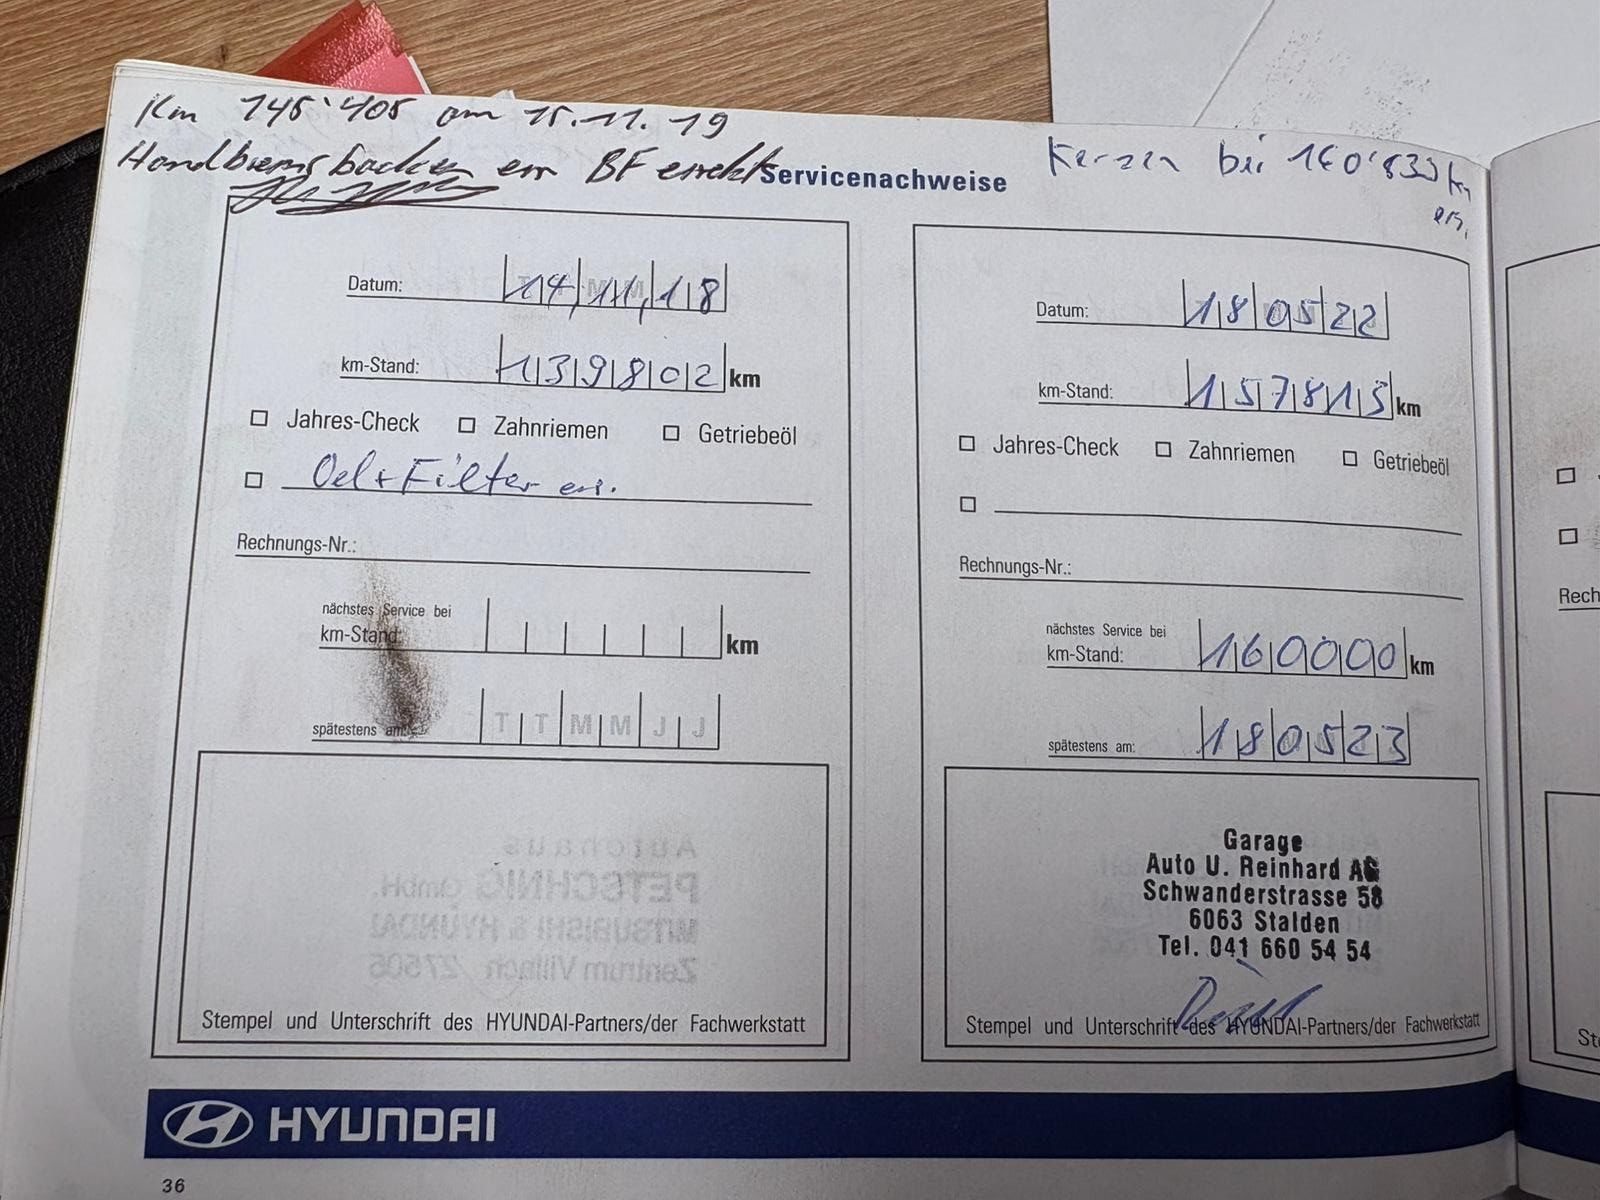 Km 145'405 am 15.11.19
Handbremsbacken em BF ersetzt
Servicenachweise
Kerzen bei 160'830 km
ers.
Datum: 14.11.18
km-Stand: 139802 km
Jahres-Check Zahnriemen Getriebeöl
Oel+Filter ers.
Rechnungs-Nr.:
nächstes Service bei
km-Stand: km
spätestens am: T T M M J J
Stempel und Unterschrift des HYUNDAI-Partners/der Fachwerkstatt
Datum: 180522
km-Stand: 157815 km
Jahres-Check Zahnriemen Getriebeöl
Rechnungs-Nr.:
nächstes Service bei
km-Stand: 160000 km
spätestens am: 180523
Garage
Auto U. Reinhard AG
Schwanderstrasse 58
6063 Stalden
Tel. 041 660 54 54
Stempel und Unterschrift des HYUNDAI-Partners/der Fachwerkstatt
HYUNDAI
36
Rech